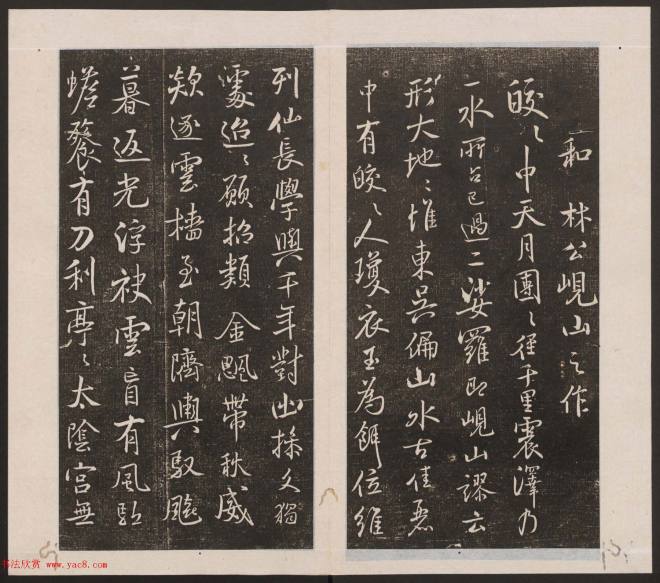 和林公岘山之作
皎〻中天月團〻徑千里震澤乃
一水所占已過二娑羅即峴山謬云
形大地〻惟東吳偏山水古佳麗
中有皎〻人瓊衣玉為餌位維
列仙長學與千年對幽操久獨
處迢〻願招類金飈帶秋威
欻逐雲檣至朝隮輿馭飈
暮返光浮袂雲盲有風馭
蟾餮有刀利亭〻太陰宮無
书法欣赏 www.yac8.com